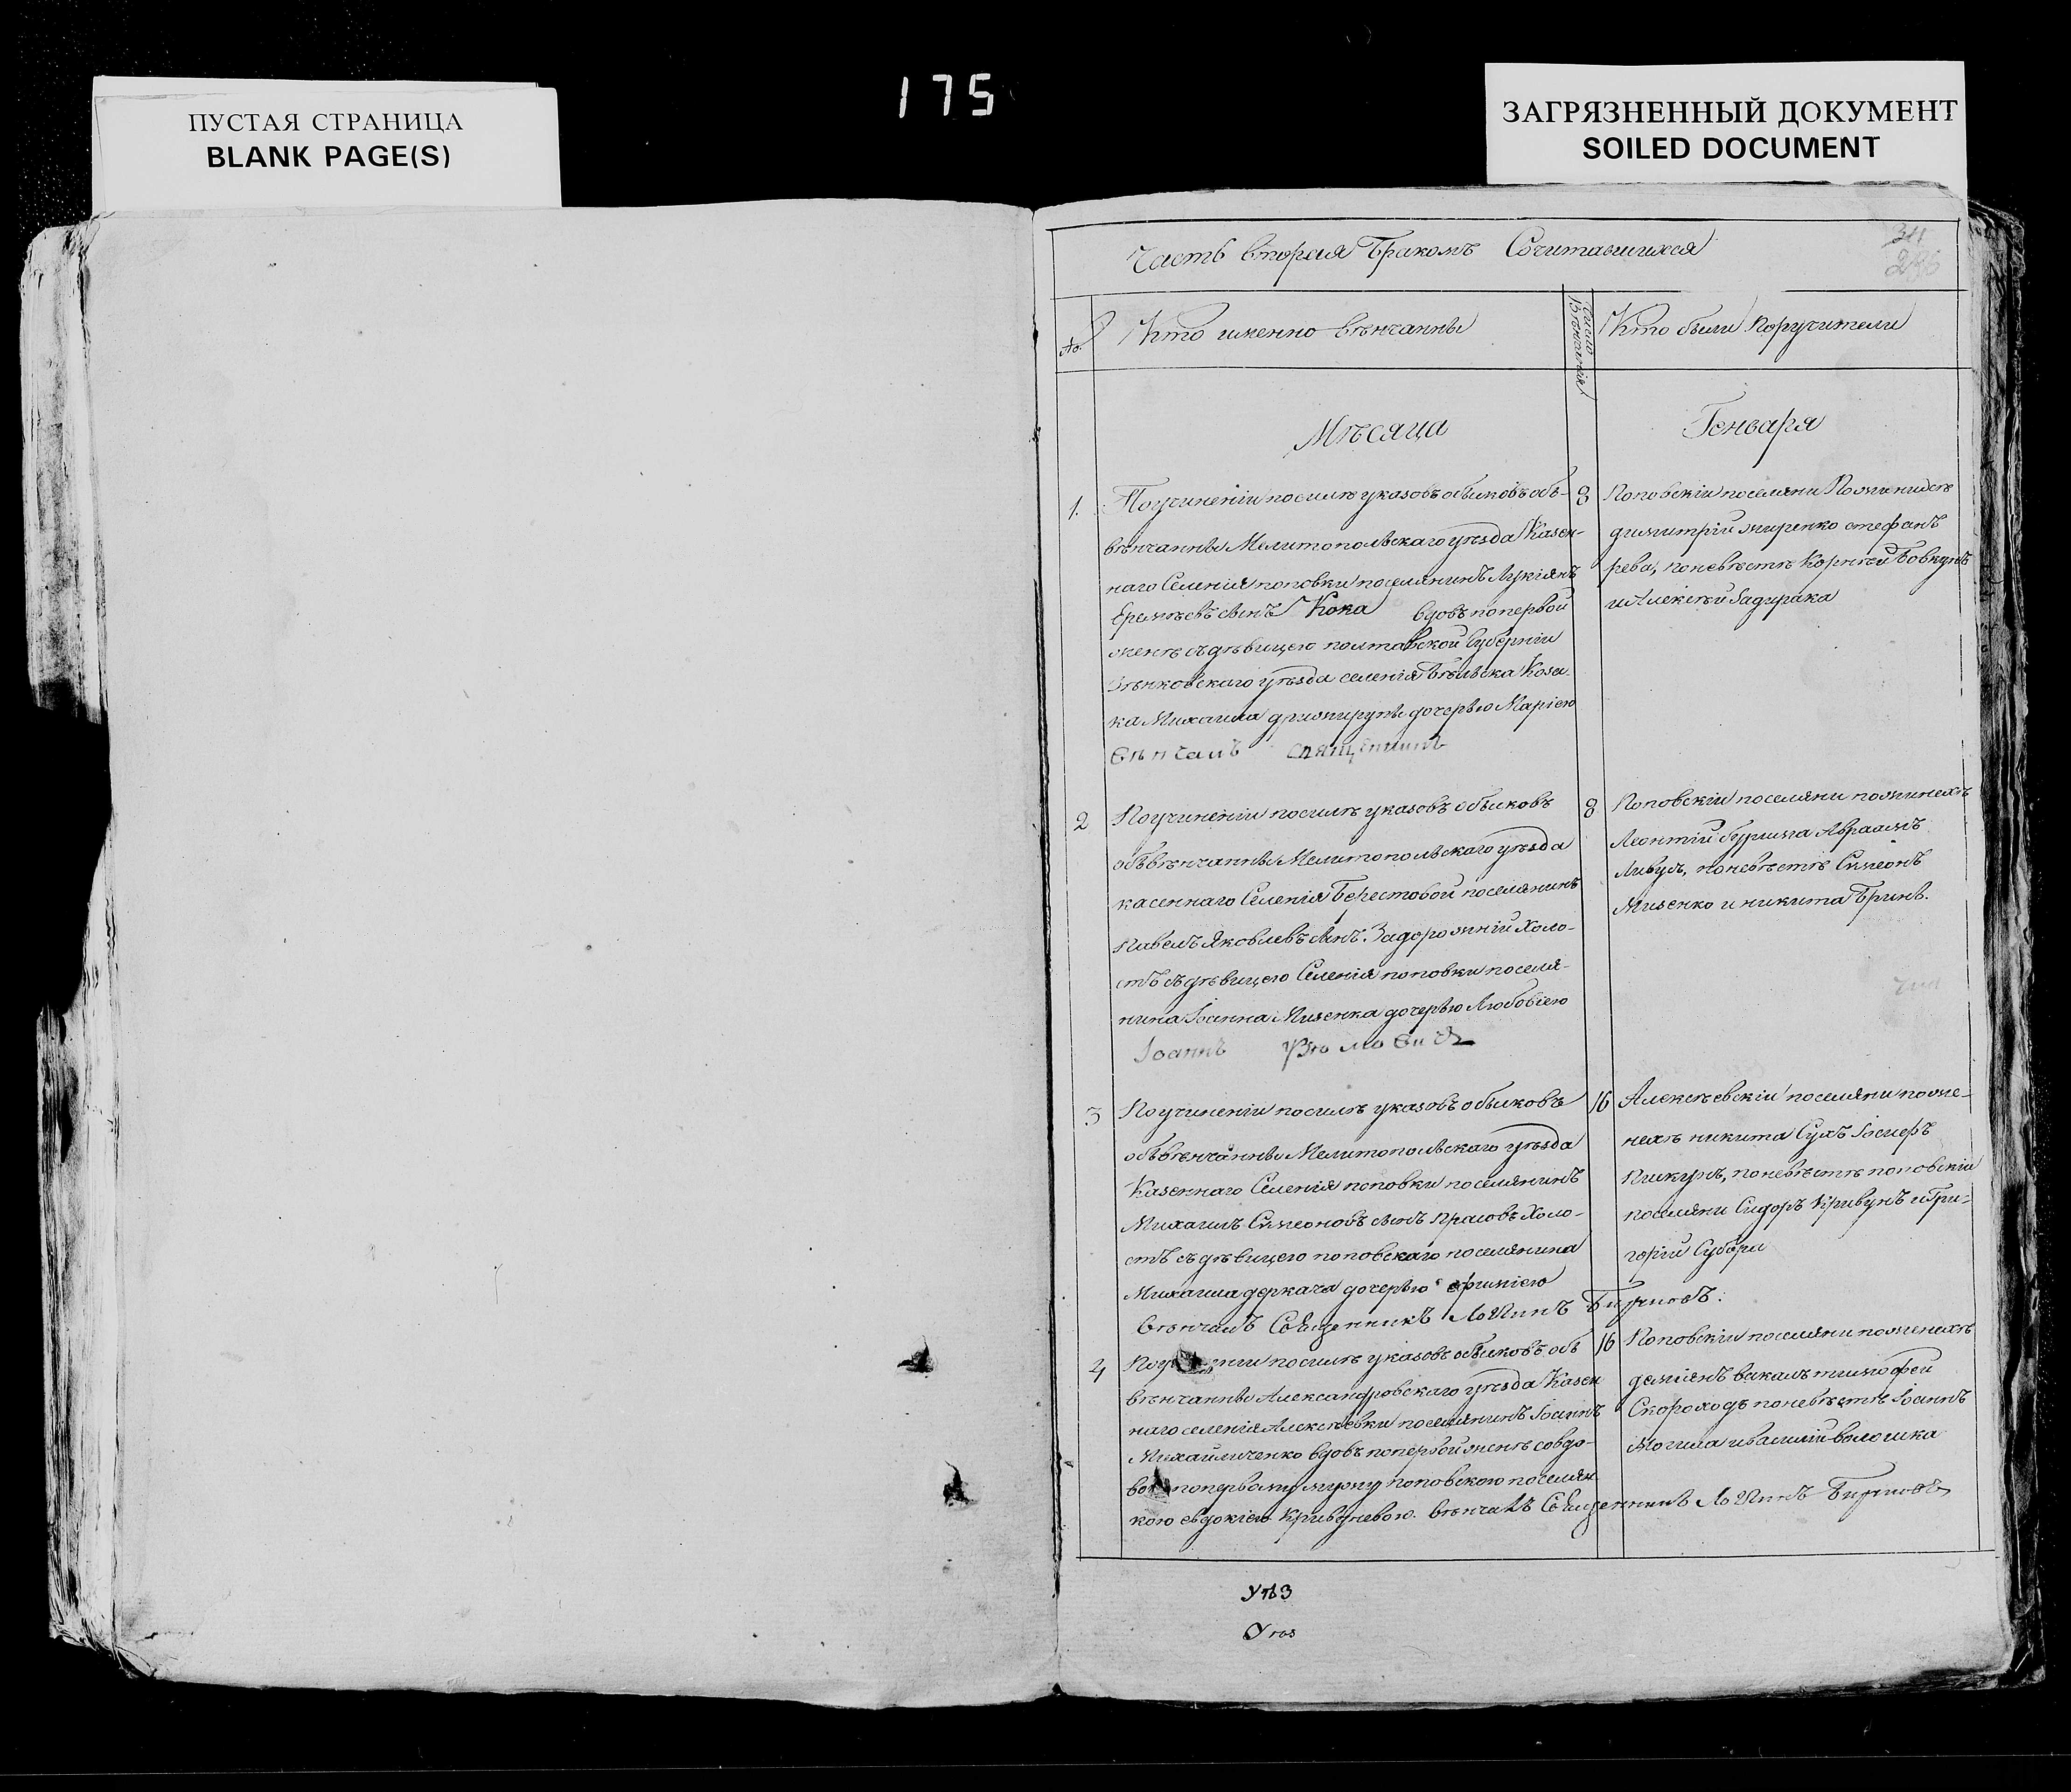 175
ПУСТАЯ СТРАНИЦА
BLANK PAGE(S)
ЗАГРЯЗНЕННЫЙ ДОКУМЕНТ
SOILED DOCUMENT
Часть вторая Бракомъ Сочитавшихся
№
Кто именно вѣнчанны
Число
Кто были Поручители
Мѣсяца
Генваря
1.
Поучиненіи посилѣ указовъ обысковъ объ-
вѣнчанны Мелитопольскаго уѣзда Казен-
наго Селенія поповки поселянинъ Лукіянъ
Еремѣевъ сынъ Кока вдовъ попервой
женѣ съ дѣвицею полтавской Губерніи
Зѣнковскаго уѣзда селенія Бѣльска Коза-
ка Михаила дочерью Маріею
вѣнчалъ священникъ
8
Поповскіи поселяни
димитрій жиренко стефанъ
рева, поневѣсте Корнѣй Бовкунъ
и Алексѣй Задирака
2
Поучиненіи посилѣ указовъ обысковъ
объвѣнчанны Мелитопольскаго уѣзда
касеннаго Селенія Берестовой поселянинъ
Павелъ Яковлевъ сынъ Задорожній Холо-
стъ съ дѣвицею Селенія поповки поселя-
нина Іоанна Мизенка дочерью Любовіею
Іоаннъ
8
Поповскіи поселяни пожинехъ
Леонтій Авраамъ
поневѣсте Симеонъ
Мизенко и никита Бринь.
3
Поучиненіи посилѣ указовъ обысковъ
объвѣнчанны Мелитопольскаго уѣзда
Казеннаго Селенія поповки поселянинъ
Михаилъ Симеоновъ сынъ Холо-
стъ съ дѣвицею поповскаго поселянина
Михаила деркача дочерью ефиміею
вѣнчалъ Священникъ
16
Алексѣевскіи поселяни пожи-
нехъ никита Сухъ Іосифъ
Пискунъ, поневѣсте поповскіи
поселяни Сидоръ Кривунъ и Гри-
горій
4
посилѣ указовъ обысковъ объ
вѣнчанны Александровскаго уѣзда Казен
наго селенія Алексѣевки поселянинъ Іоаннъ
Михайличенко вдовъ попервой женѣ совдо-
попервому мужу поповскою поселян
кою евдокіею Кривуневою. вѣнчалъ Священникъ
16
Поповскіи поселяни поженехъ
даміянъ тимофей
Скороходъ поневѣсте Іоаннъ
Могила и василій волошка
Уѣз
Уѣз